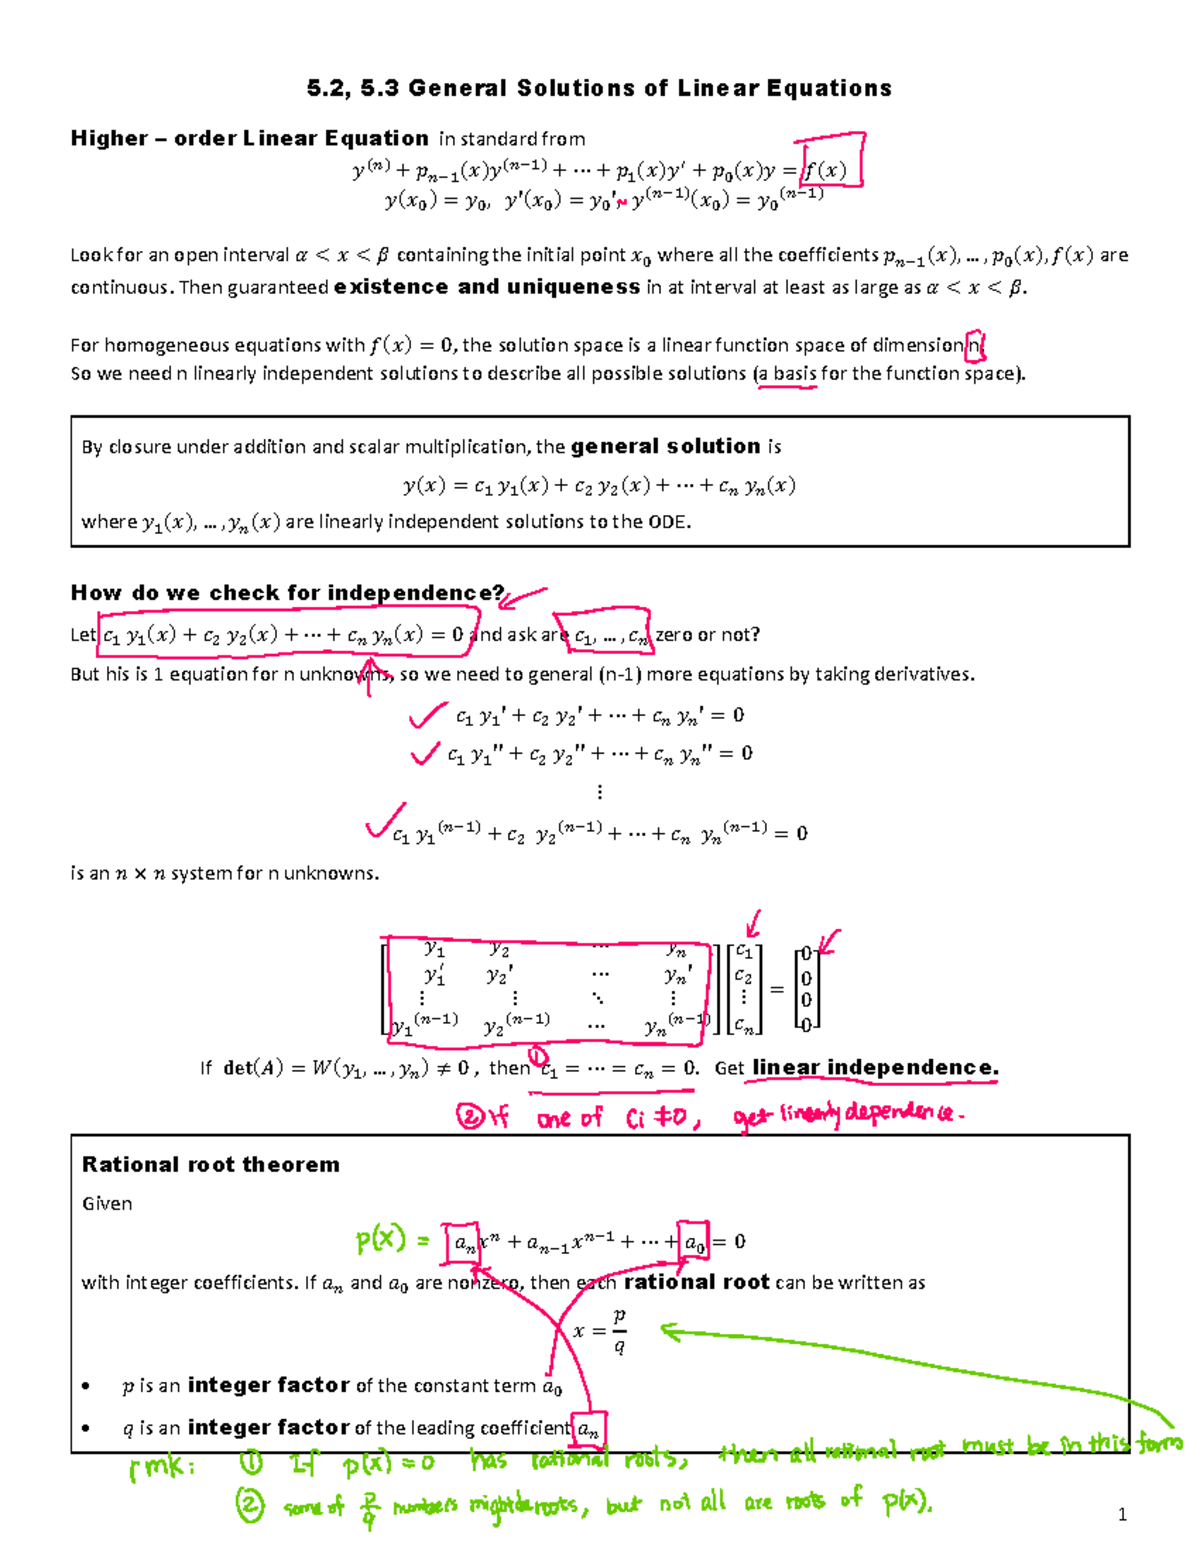 5.2, 5.3 General Solutions of Linear Equations
Higher – order Linear Equation in standard from
y⁽ⁿ⁾ + pₙ₋₁(x)y⁽ⁿ⁻¹⁾ + ⋯ + p₁(x)y′ + p₀(x)y = f(x)
y(x₀) = y₀, y′(x₀) = y₀′, y⁽ⁿ⁻¹⁾(x₀) = y₀⁽ⁿ⁻¹⁾
Look for an open interval α < x < β containing the initial point x₀ where all the coefficients pₙ₋₁(x), … , p₀(x), f(x) are
continuous. Then guaranteed existence and uniqueness in at interval at least as large as α < x < β.
For homogeneous equations with f(x) = 0, the solution space is a linear function space of dimension n.
So we need n linearly independent solutions to describe all possible solutions (a basis for the function space).
By closure under addition and scalar multiplication, the general solution is
y(x) = c₁ y₁(x) + c₂ y₂(x) + ⋯ + cₙ yₙ(x)
where y₁(x), … , yₙ(x) are linearly independent solutions to the ODE.
How do we check for independence?
Let c₁ y₁(x) + c₂ y₂(x) + ⋯ + cₙ yₙ(x) = 0 and ask are c₁, … , cₙ zero or not?
But his is 1 equation for n unknowns, so we need to general (n-1) more equations by taking derivatives.
c₁ y₁′ + c₂ y₂′ + ⋯ + cₙ yₙ′ = 0
c₁ y₁″ + c₂ y₂″ + ⋯ + cₙ yₙ″ = 0
⋮
c₁ y₁⁽ⁿ⁻¹⁾ + c₂ y₂⁽ⁿ⁻¹⁾ + ⋯ + cₙ yₙ⁽ⁿ⁻¹⁾ = 0
is an n × n system for n unknowns.
y₁ y₂ ⋯ yₙ c₁ 0
y₁′ y₂′ ⋯ yₙ′ c₂ = 0
⋮ ⋮ ⋱ ⋮ ⋮ 0
y₁⁽ⁿ⁻¹⁾ y₂⁽ⁿ⁻¹⁾ ⋯ yₙ⁽ⁿ⁻¹⁾ cₙ 0
①
If det(A) = W(y₁, … , yₙ) ≠ 0 , then c₁ = ⋯ = cₙ = 0. Get linear independence.
② If one of Ci ≠0, get linearly dependence.
Rational root theorem
Given
p(x) = aₙxⁿ + aₙ₋₁xⁿ⁻¹ + ⋯ + a₀ = 0
with integer coefficients. If aₙ and a₀ are nonzero, then each rational root can be written as
x = p/q
• p is an integer factor of the constant term a₀
• q is an integer factor of the leading coefficient aₙ
rmk: ① If p(x)=0 has rational roots, then all rational root must be in this form
② some of p/q numbers might be roots, but not all are roots of p(x).
1